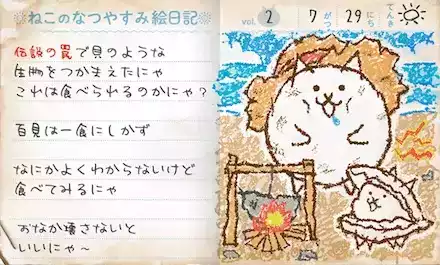 ※ねこのなつやすみ絵日記※
vol. 2 7がつ 29にち てんき
伝説の罠で貝のような
生物をつかまえたにゃ
これは食べられるのかにゃ？
百見は一食にしかず
なにかよくわからないけど
食べてみるにゃ
おなか壊さないと
いいにゃ～